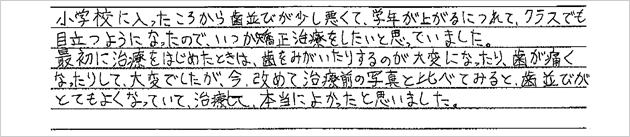 小学校に入ったころから歯並びが少し悪くて、学年が上がるにつれて、クラスでも
目立つようになったので、いつか矯正治療をしたいと思っていました。
最初に治療をはじめたときは、歯をみがいたりするのが大変になったり、歯が痛く
なったりして、大変でしたが、今、改めて治療前の写真と比べてみると、歯並びが
とてもよくなっていて、治療して、本当によかったと思いました。